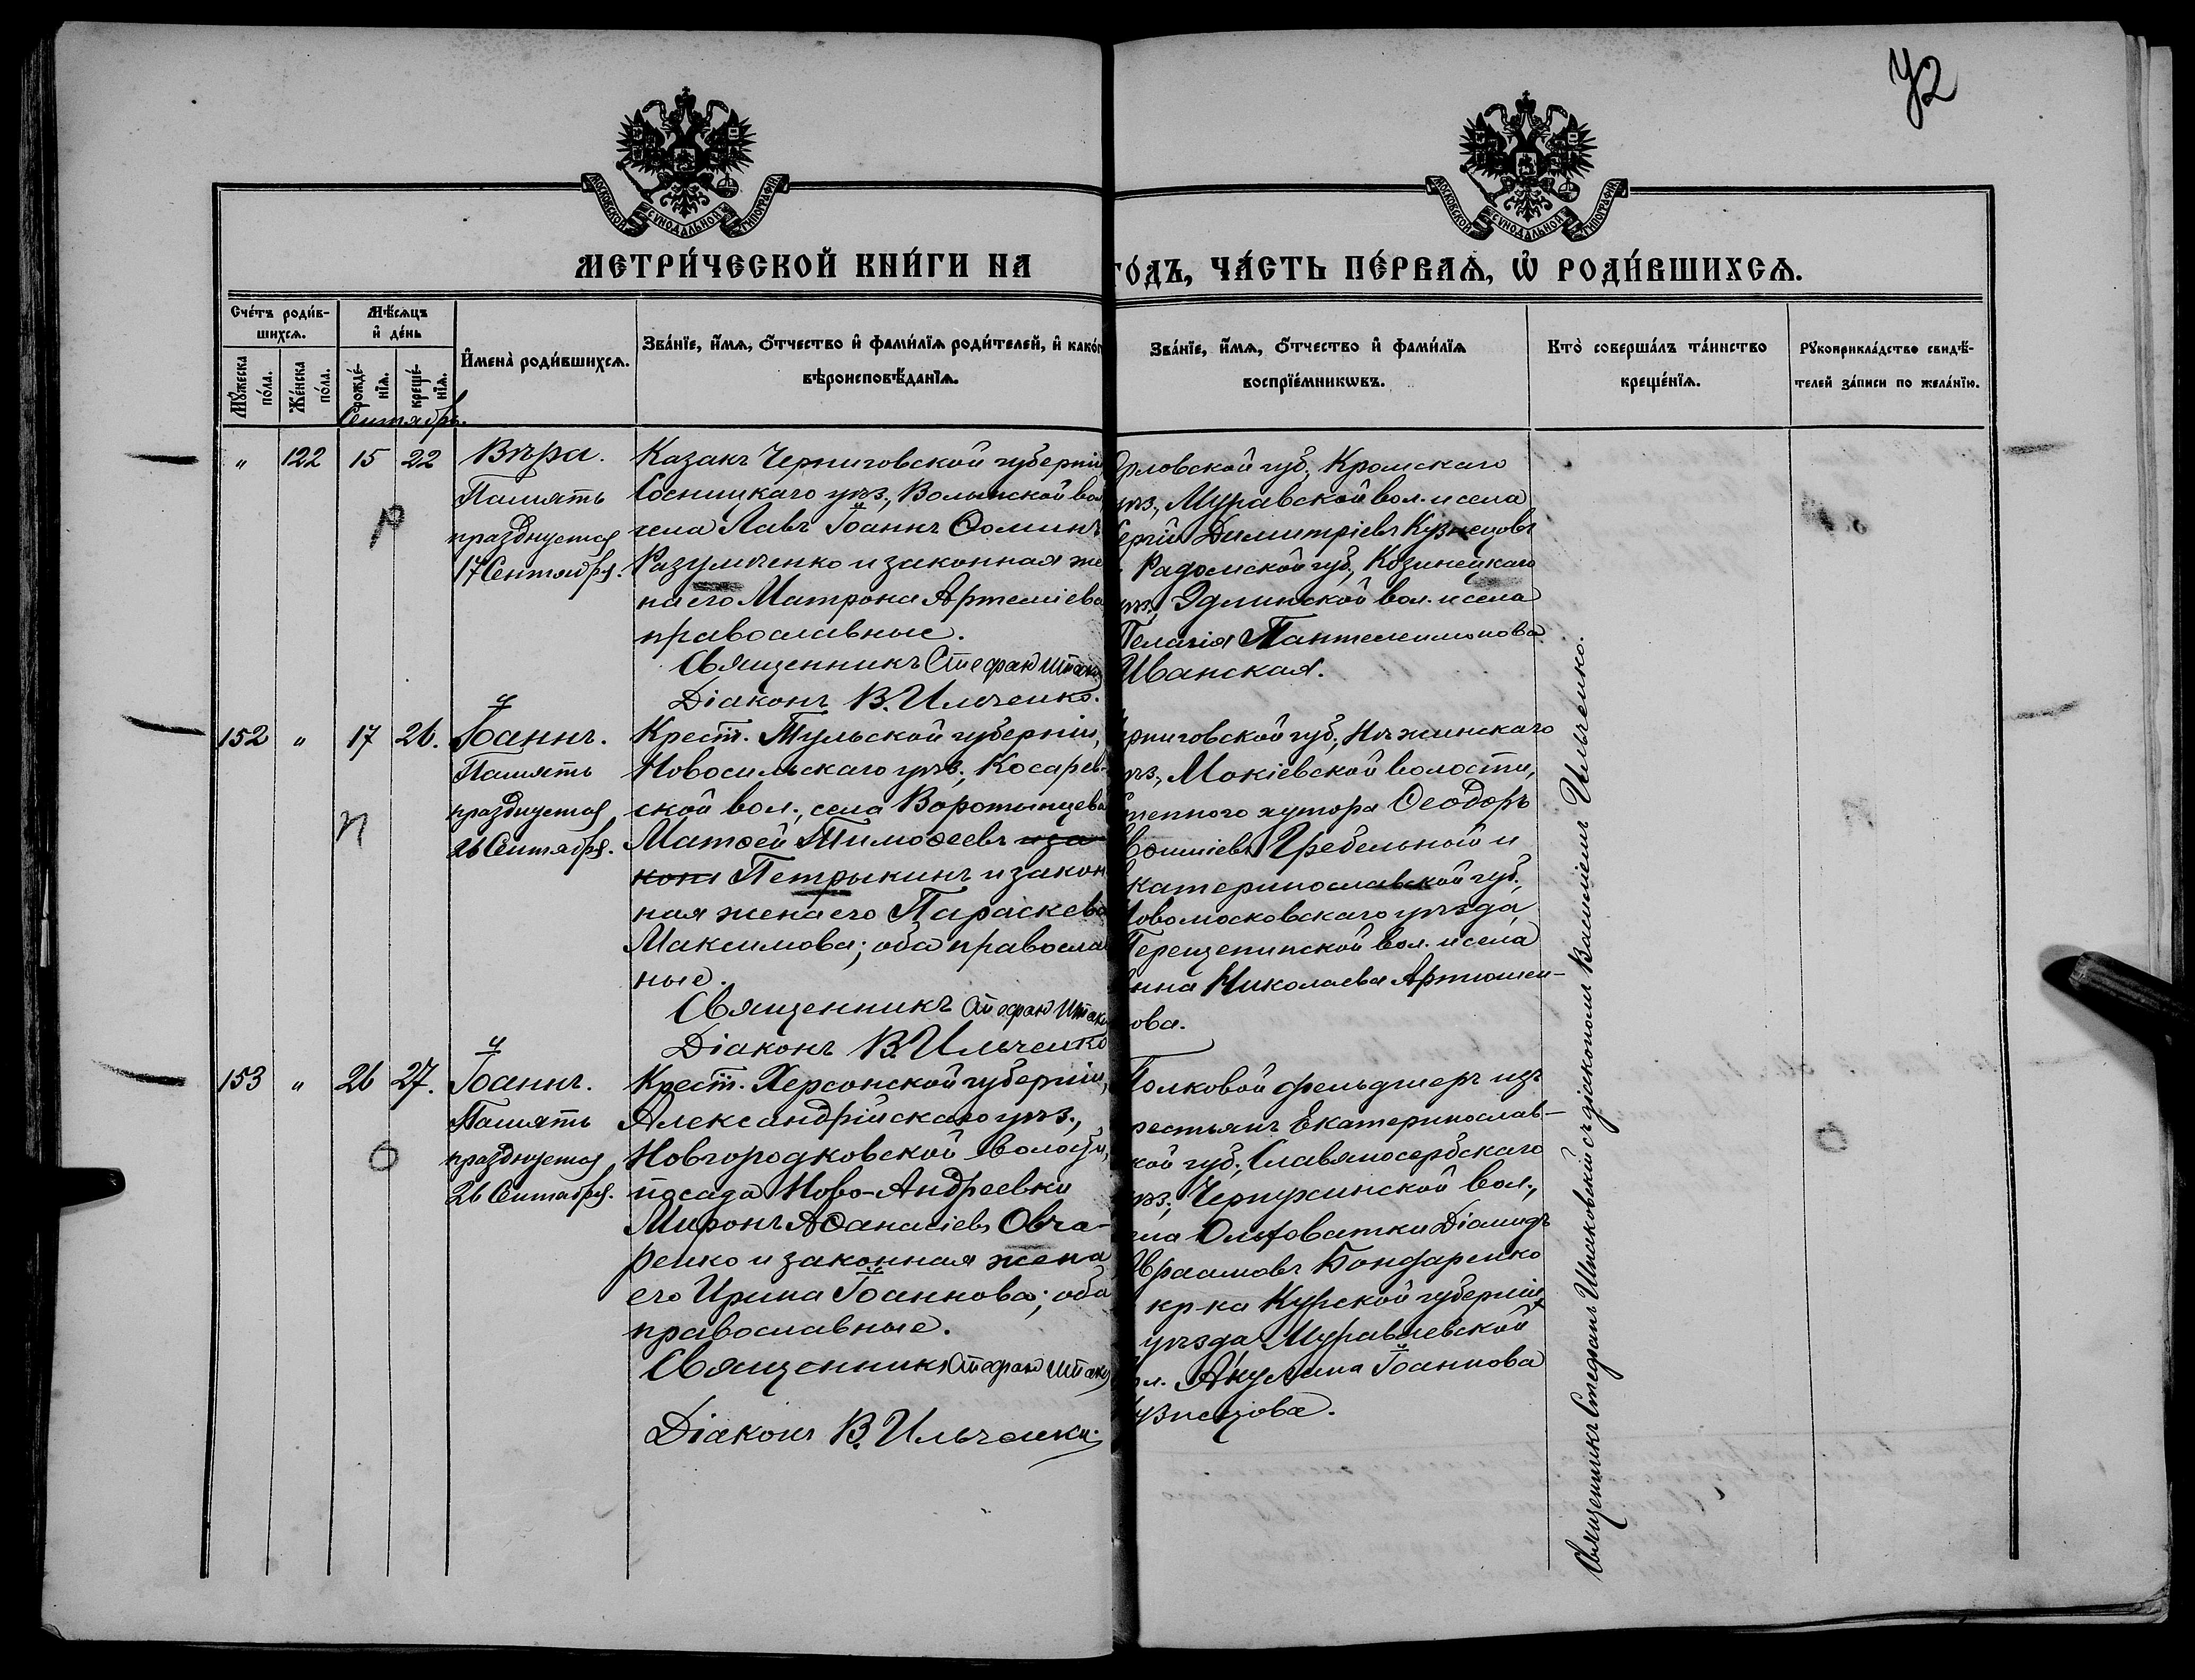 72
МОСКОВСКОЙ СѴНОДАЛЬНОЙ ТИПОГРАФІИ
МОСКОВСКОЙ СѴНОДАЛЬНОЙ ТИПОГРАФІИ
МЕТРИ́ЧЕСКОЙ КНИ́ГИ НА
ГО́ДЪ, ЧА́СТЬ ПЕ́РВАѦ, Ѡ҆ РОДИ́ВШИХСѦ.
Сче́тъ роди́в-
шихсѧ.
Мѣ́сѧцъ
и҆ де́нь
Мꙋ́жеска по́ла.
Же́нска по́ла.
рожде́-нїѧ.
креще́-нїѧ.
И҆мена̀ роди́вшихсѧ.
Зва́нїе, и҆́мѧ, ѻ҆́тчество и҆ фами́лїѧ роди́телей, и҆ како́г
вѣроисповѣ́данїѧ.
Зва́нїе, и҆́мѧ, ѻ҆́тчество и҆ фами́лїѧ
воспрїе́мникѡвъ.
Кто̀ соверша́лъ та́инство
креще́нїѧ.
Рꙋкоприкла́дство свидѣ́-
телей за́писи по жела́нїю.
Сентябрь.
" 122 15 22 Вѣра.
Память
празднуется
17 Сентября.
Казакъ Черниговской губерніи
Сосницкаго уѣз., Волынской вол
села Лавъ Іоаннъ Ѳоминъ
Разумченко и законная же
на его Матрона Артеміева
православные.
Священникъ Стефан Шпак
Діаконъ В. Ильченко.
Орловской губ., Кромскаго
уѣз., Муравской вол. и села
Сергій Димитріевъ Кузнецовъ
Радомской губ., Козинецкаго
уѣз., Эдлинской вол. и села
Пелагія Пантелеимонова
Иванская.
152 " 17 26. Іоаннъ.
Память
празднуется
26 Сентября.
Крест. Тульской губерніи,
Новосильскаго уѣз., Косарев-
ской вол., села Воротынцева
Матѳей Тимоѳеевъ иза
кон Петрыкинъ и закон
ная жена его Параскева
Максимова; оба правосла
ные.
Священникъ Стефан Шпак
Діаконъ В. Ильченко
рниговской губ., Нѣжинскаго
уѣз., Макіевской волости,
епного хутора Ѳеодоръ
Гребельной и
катеринославской губ.,
Новомосковскаго уѣзда,
Перещепинской вол. и села
нна Николаева Артюшен-
кова.
153 " 26 27. Іоаннъ.
Память
празднуется
26 Сентября.
Крест. Херсонской губерніи,
Александрійскаго уѣз.,
Новгородковской волости,
посада Ново-Андреевки
Миронъ Аѳанасіевъ Овча-
ренко и законная жена
его Ирина Іоаннова; оба
православные.
Священникъ Стефан Шпак
Діаконъ В. Ильченко.
Полковой фельдшеръ изъ
рестьянъ Екатеринослав-
кой губ., Славяносербскаго
уѣз., Чернухинской вол.,
ела Ольховатки Діомидъ
Авраамовъ Бондаренко
кр-ка Курской губерніи
уѣзда, Муравлевской
ол. Акулина Іоаннова
узнецова.
Священникъ Стефанъ Шпаковскій съ діакономъ Василіемъ Ильченко.